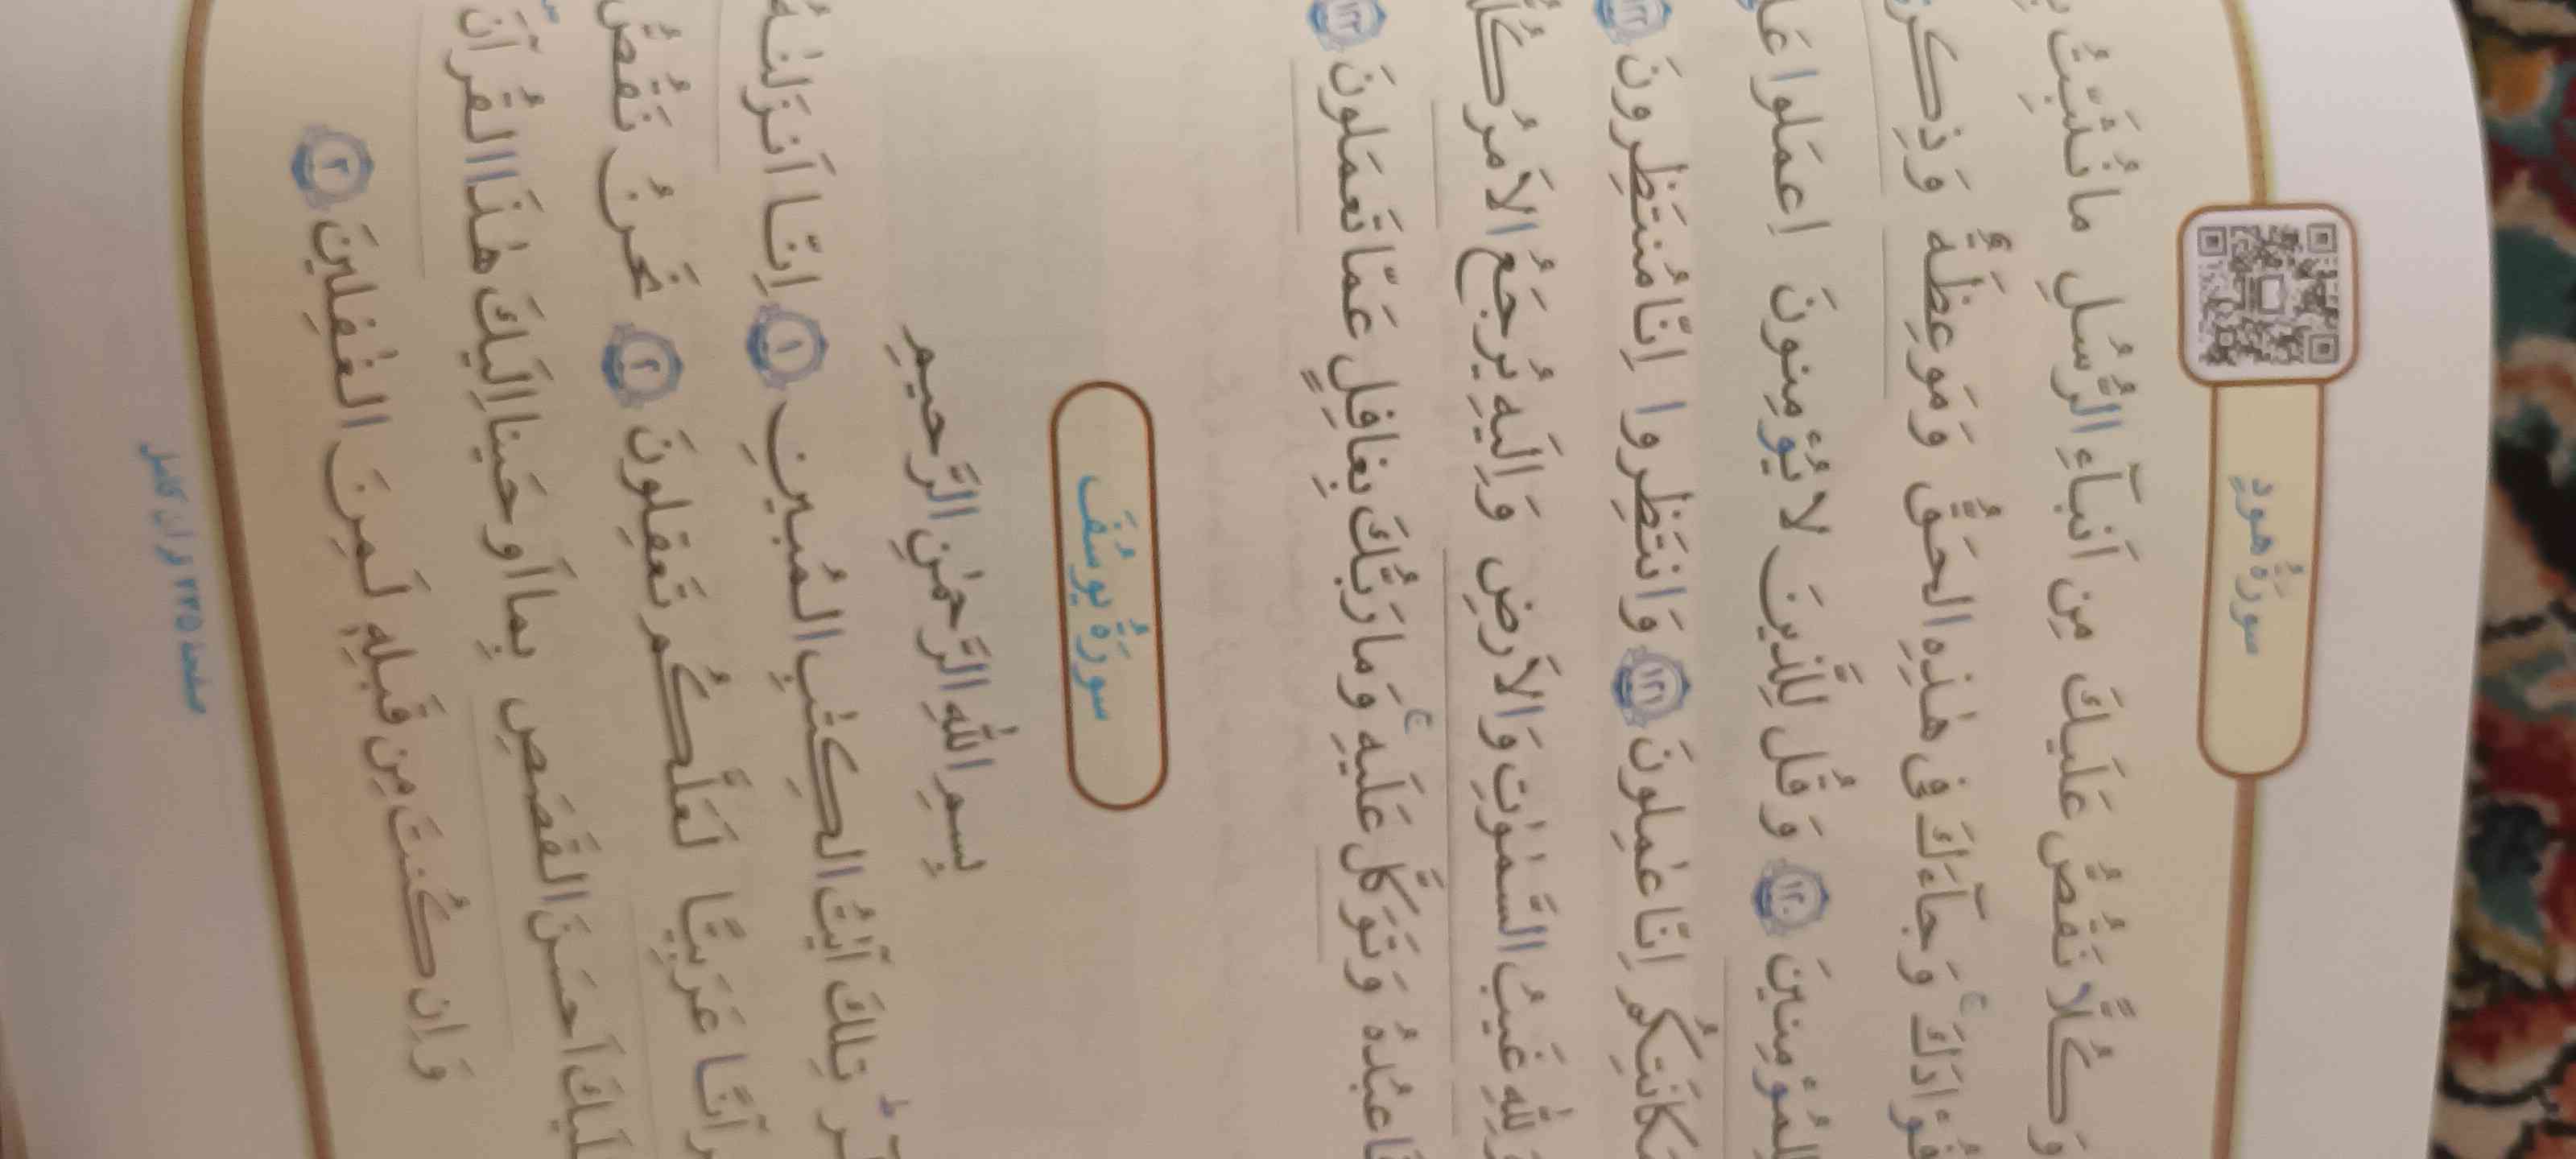 سورَةُ هودٍ
وَ كُلًّا نَقُصُّ عَلَيكَ مِن اَنبآءِ الرُّسُلِ ما نُثَبِّتُ
فُؤادَكَ ۚ وَ جآءَكَ فى هٰذِهِ الحَقُّ وَ مَوعِظَةٌ وَ ذِكرىٰ
لِلمُؤمِنينَ ﴿١٢٠﴾ وَ قُل لِلَّذينَ لا يُؤمِنونَ اعمَلوا
مَكانَتِكُم اِنّا عٰمِلونَ ﴿١٢١﴾ وَ انتَظِروا اِنّا مُنتَظِرونَ ﴿١٢٢﴾
وَ لِلّٰهِ غَيبُ السَّمٰوٰتِ وَ الاَرضِ وَ اِلَيهِ يُرجَعُ الاَمرُ كُلُّهُ
فَاعبُدهُ وَ تَوَكَّل عَلَيهِ ۚ وَ ما رَبُّكَ بِغافِلٍ عَمّا تَعمَلونَ ﴿١٢٣﴾
سورَةُ يوسُفَ
بِسمِ اللّٰهِ الرَّحمٰنِ الرَّحيمِ
تِلكَ ءايٰتُ الكِتٰبِ المُبينِ ﴿١﴾ اِنّا اَنزَلنٰهُ
عَرَبِيًّا لَعَلَّكُم تَعقِلونَ ﴿٢﴾ نَحنُ نَقُصُّ
عَلَيكَ اَحسَنَ القَصَصِ بِما اَوحَينا اِلَيكَ هٰذَا القُرءانَ
وَ اِن كُنتَ مِن قَبلِهِ لَمِنَ الغٰفِلينَ ﴿٣﴾
صفحه ٢٣٥ قرآن کامل